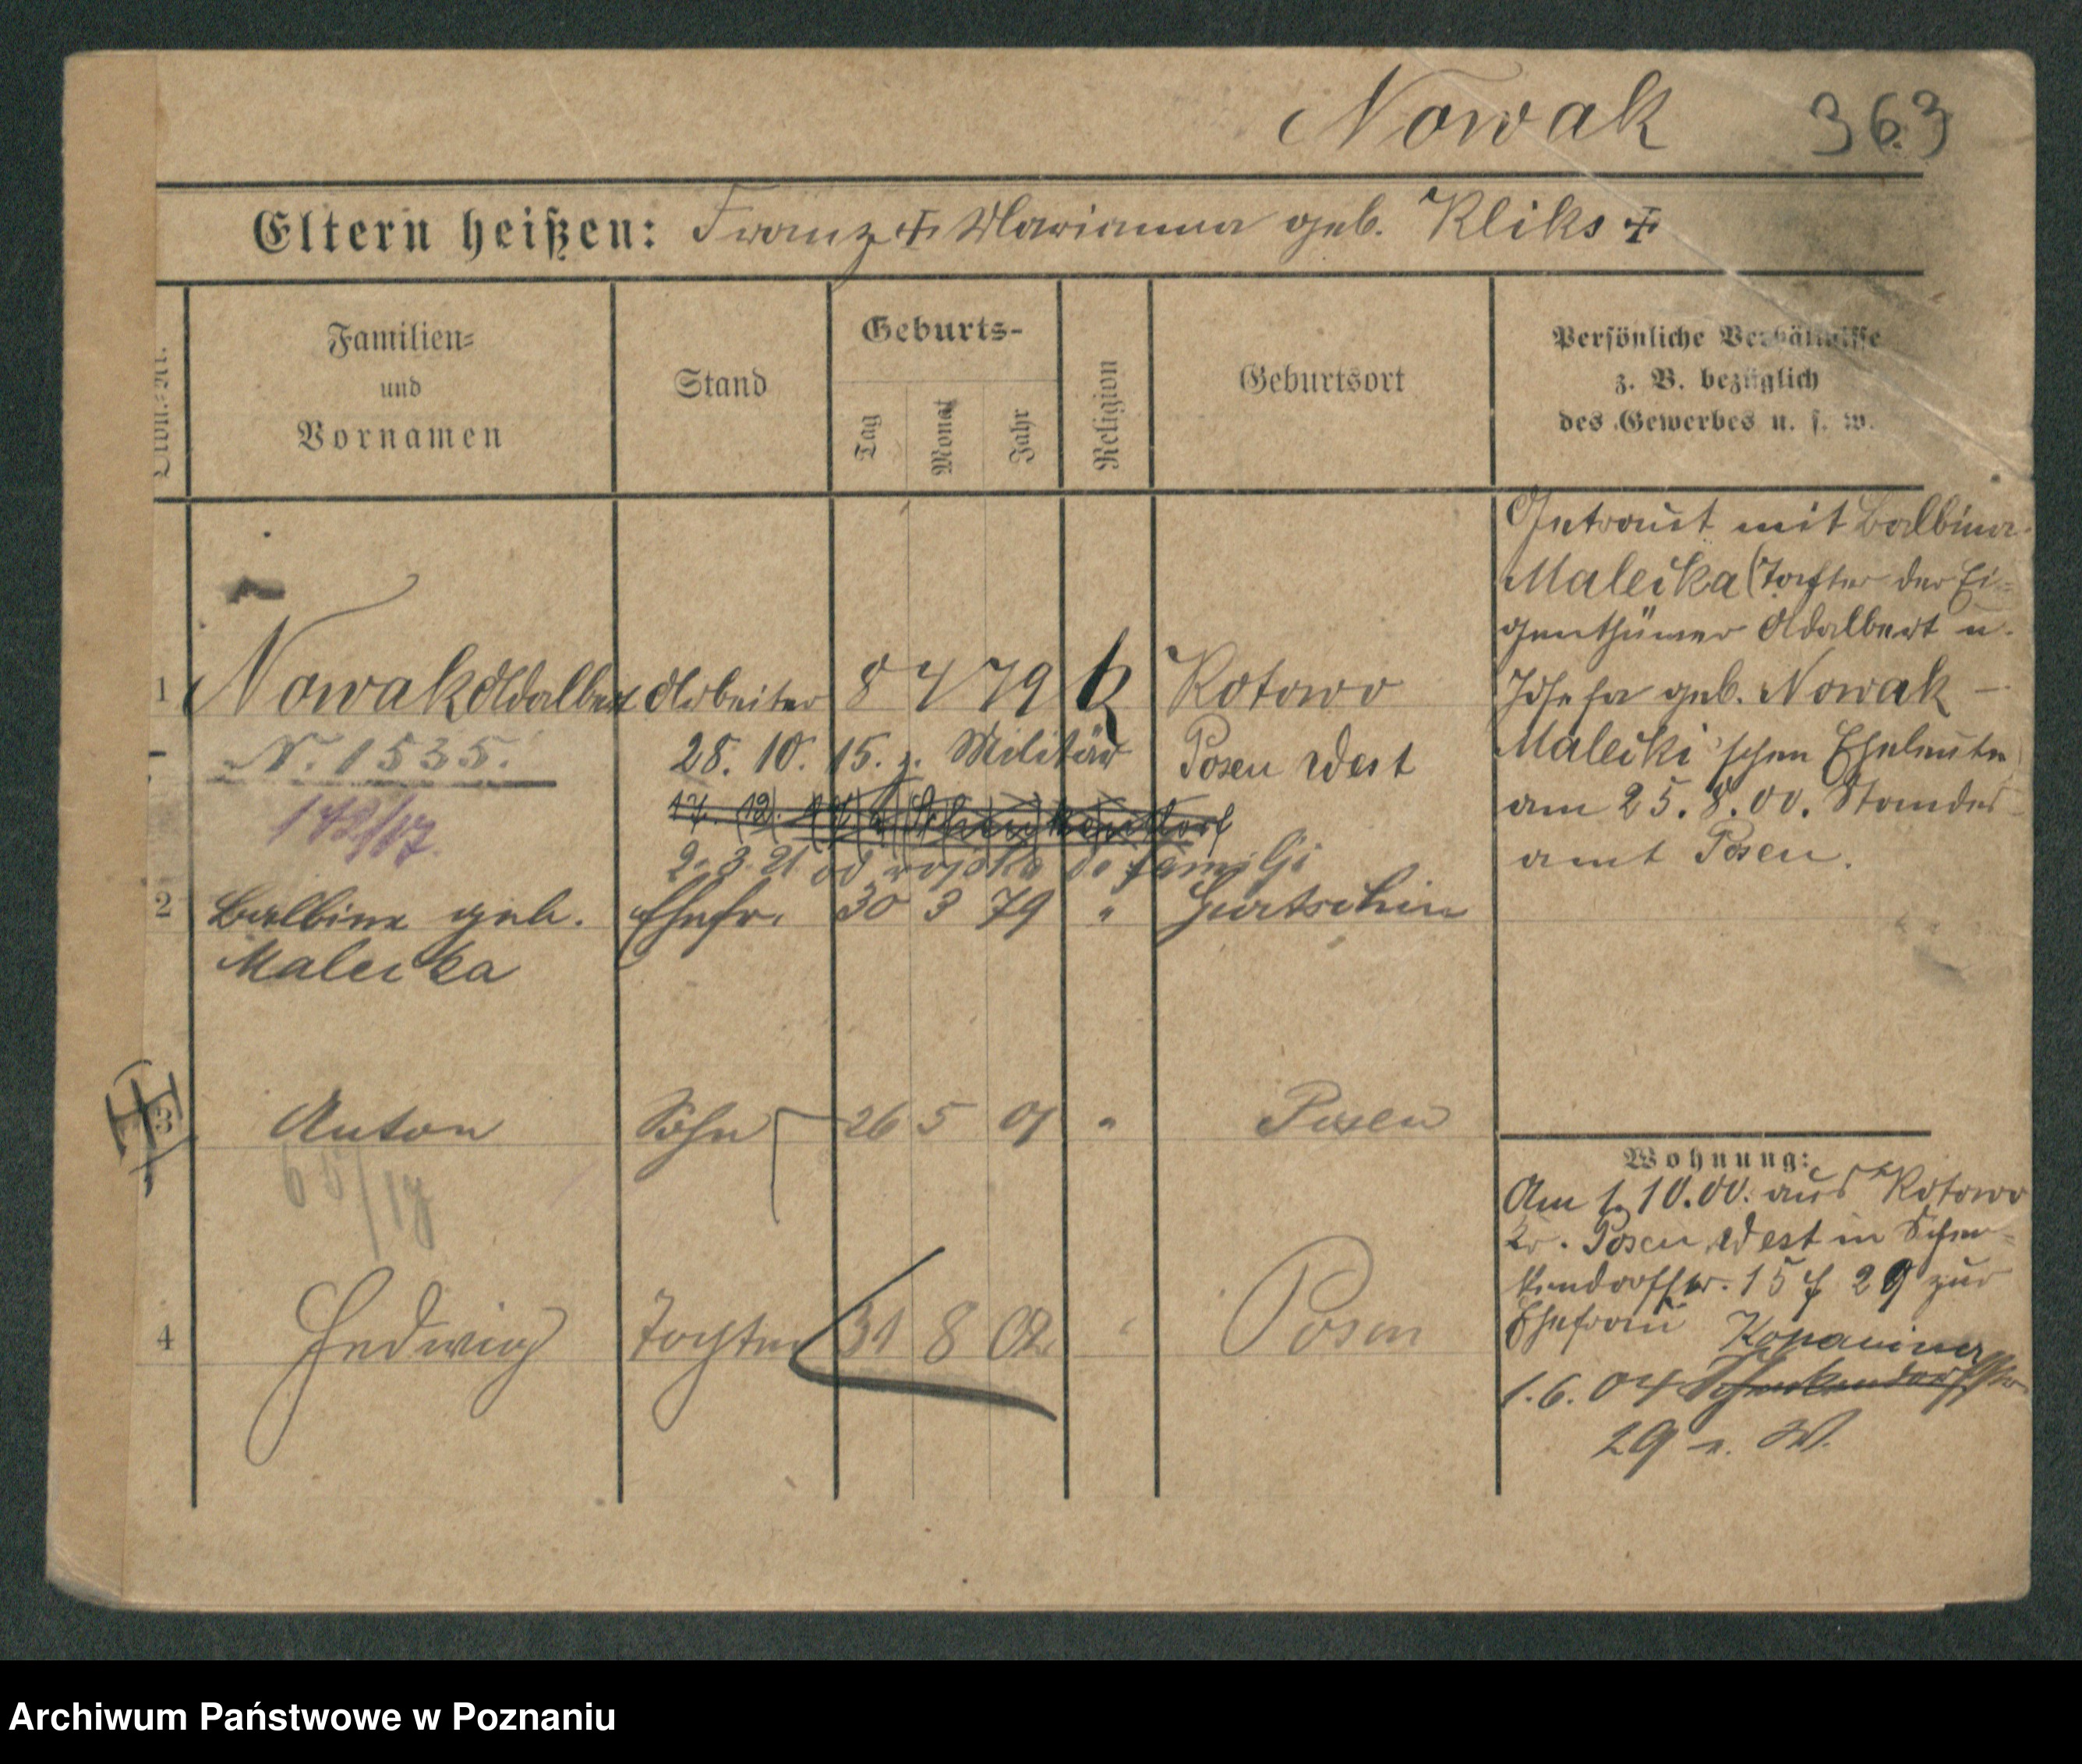 Nowak 363
Eltern heißen: Franz + Marianna geb. Kliks +
Familien=
und
Vornamen
Stand
Geburts-
Tag
Monat
Jahr
Religion
Geburtsort
Persönliche Verhältnisse
z. B. bezüglich
des Gewerbes u. s. w.
1 Nowak Adalbert Arbeiter 8 4 79 k Kotowo
28. 10. 15. z. Militär Posen West
N. 1535.
17. 12.
2. 3. 21 od wojska do familji
2 Balbina geb. Ehefr. 30 3 79 " Gurtschin
Malecka
3 Anton Sohn 26 5 01 " Posen
4 Hedwig Tochter 31 8 02 " Posen
Getraut mit Balbina
Malecka (Tochter der Ei-
genthümer Adalbert u.
Josefa geb. Nowak –
Malecki'schen Eheleute
am 25. 8. 00. Standes-
amt Posen.
Wohnung:
Am 1. 10. 00. aus Kotowo
Kr. Posen West in Schen-
kendorffstr. 15 29 zur
Ehefrau
Kopanina
1. 6. 04 Schenkendorffstr
29 n. W.
Archiwum Państwowe w Poznaniu